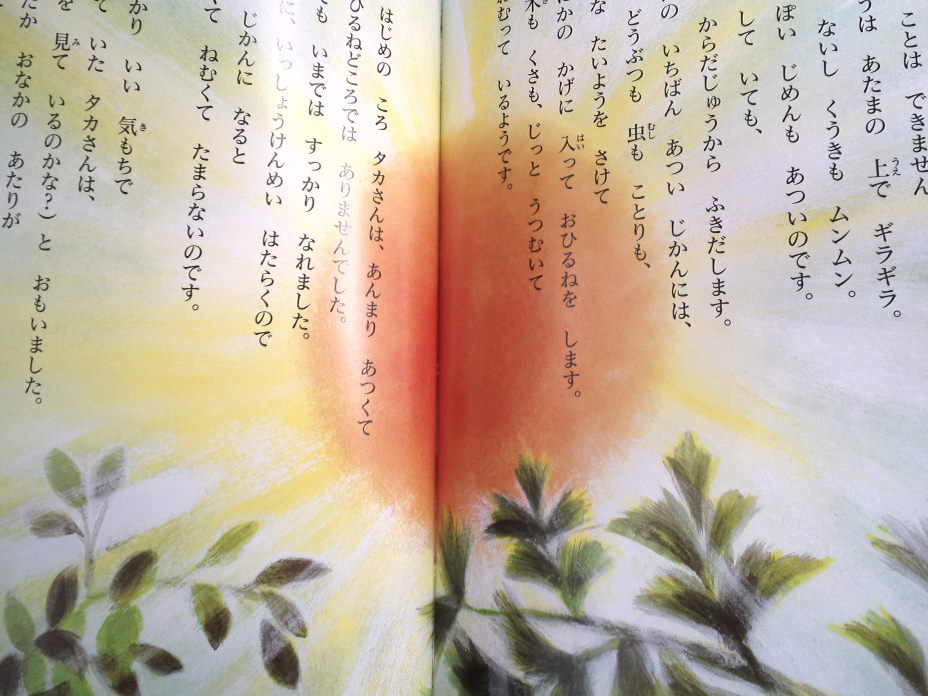 ことは できません
うは あたまの 上で ギラギラ。
ないし くうきも ムンムン。
ぽい じめんも あついのです。
して いても、
からだじゅうから ふきだします。
の いちばん あつい じかんには、
どうぶつも 虫も ことりも、
な たいようを さけて
にかの かげに 入って おひるねを します。
木も くさも、じっと うつむいて
おむって いるようです。
はじめの ころ タカさんは、あんまり あつくて
ひるねどころでは ありませんでした。
でも いまでは すっかり なれました。
に、いっしょうけんめい はたらくので
じかんに なると
て ねむくて たまらないのです。
かり いい 気もちで
て いた タカさんは、
を 見て いるのかな？） と おもいました。
たか おなかの あたりが